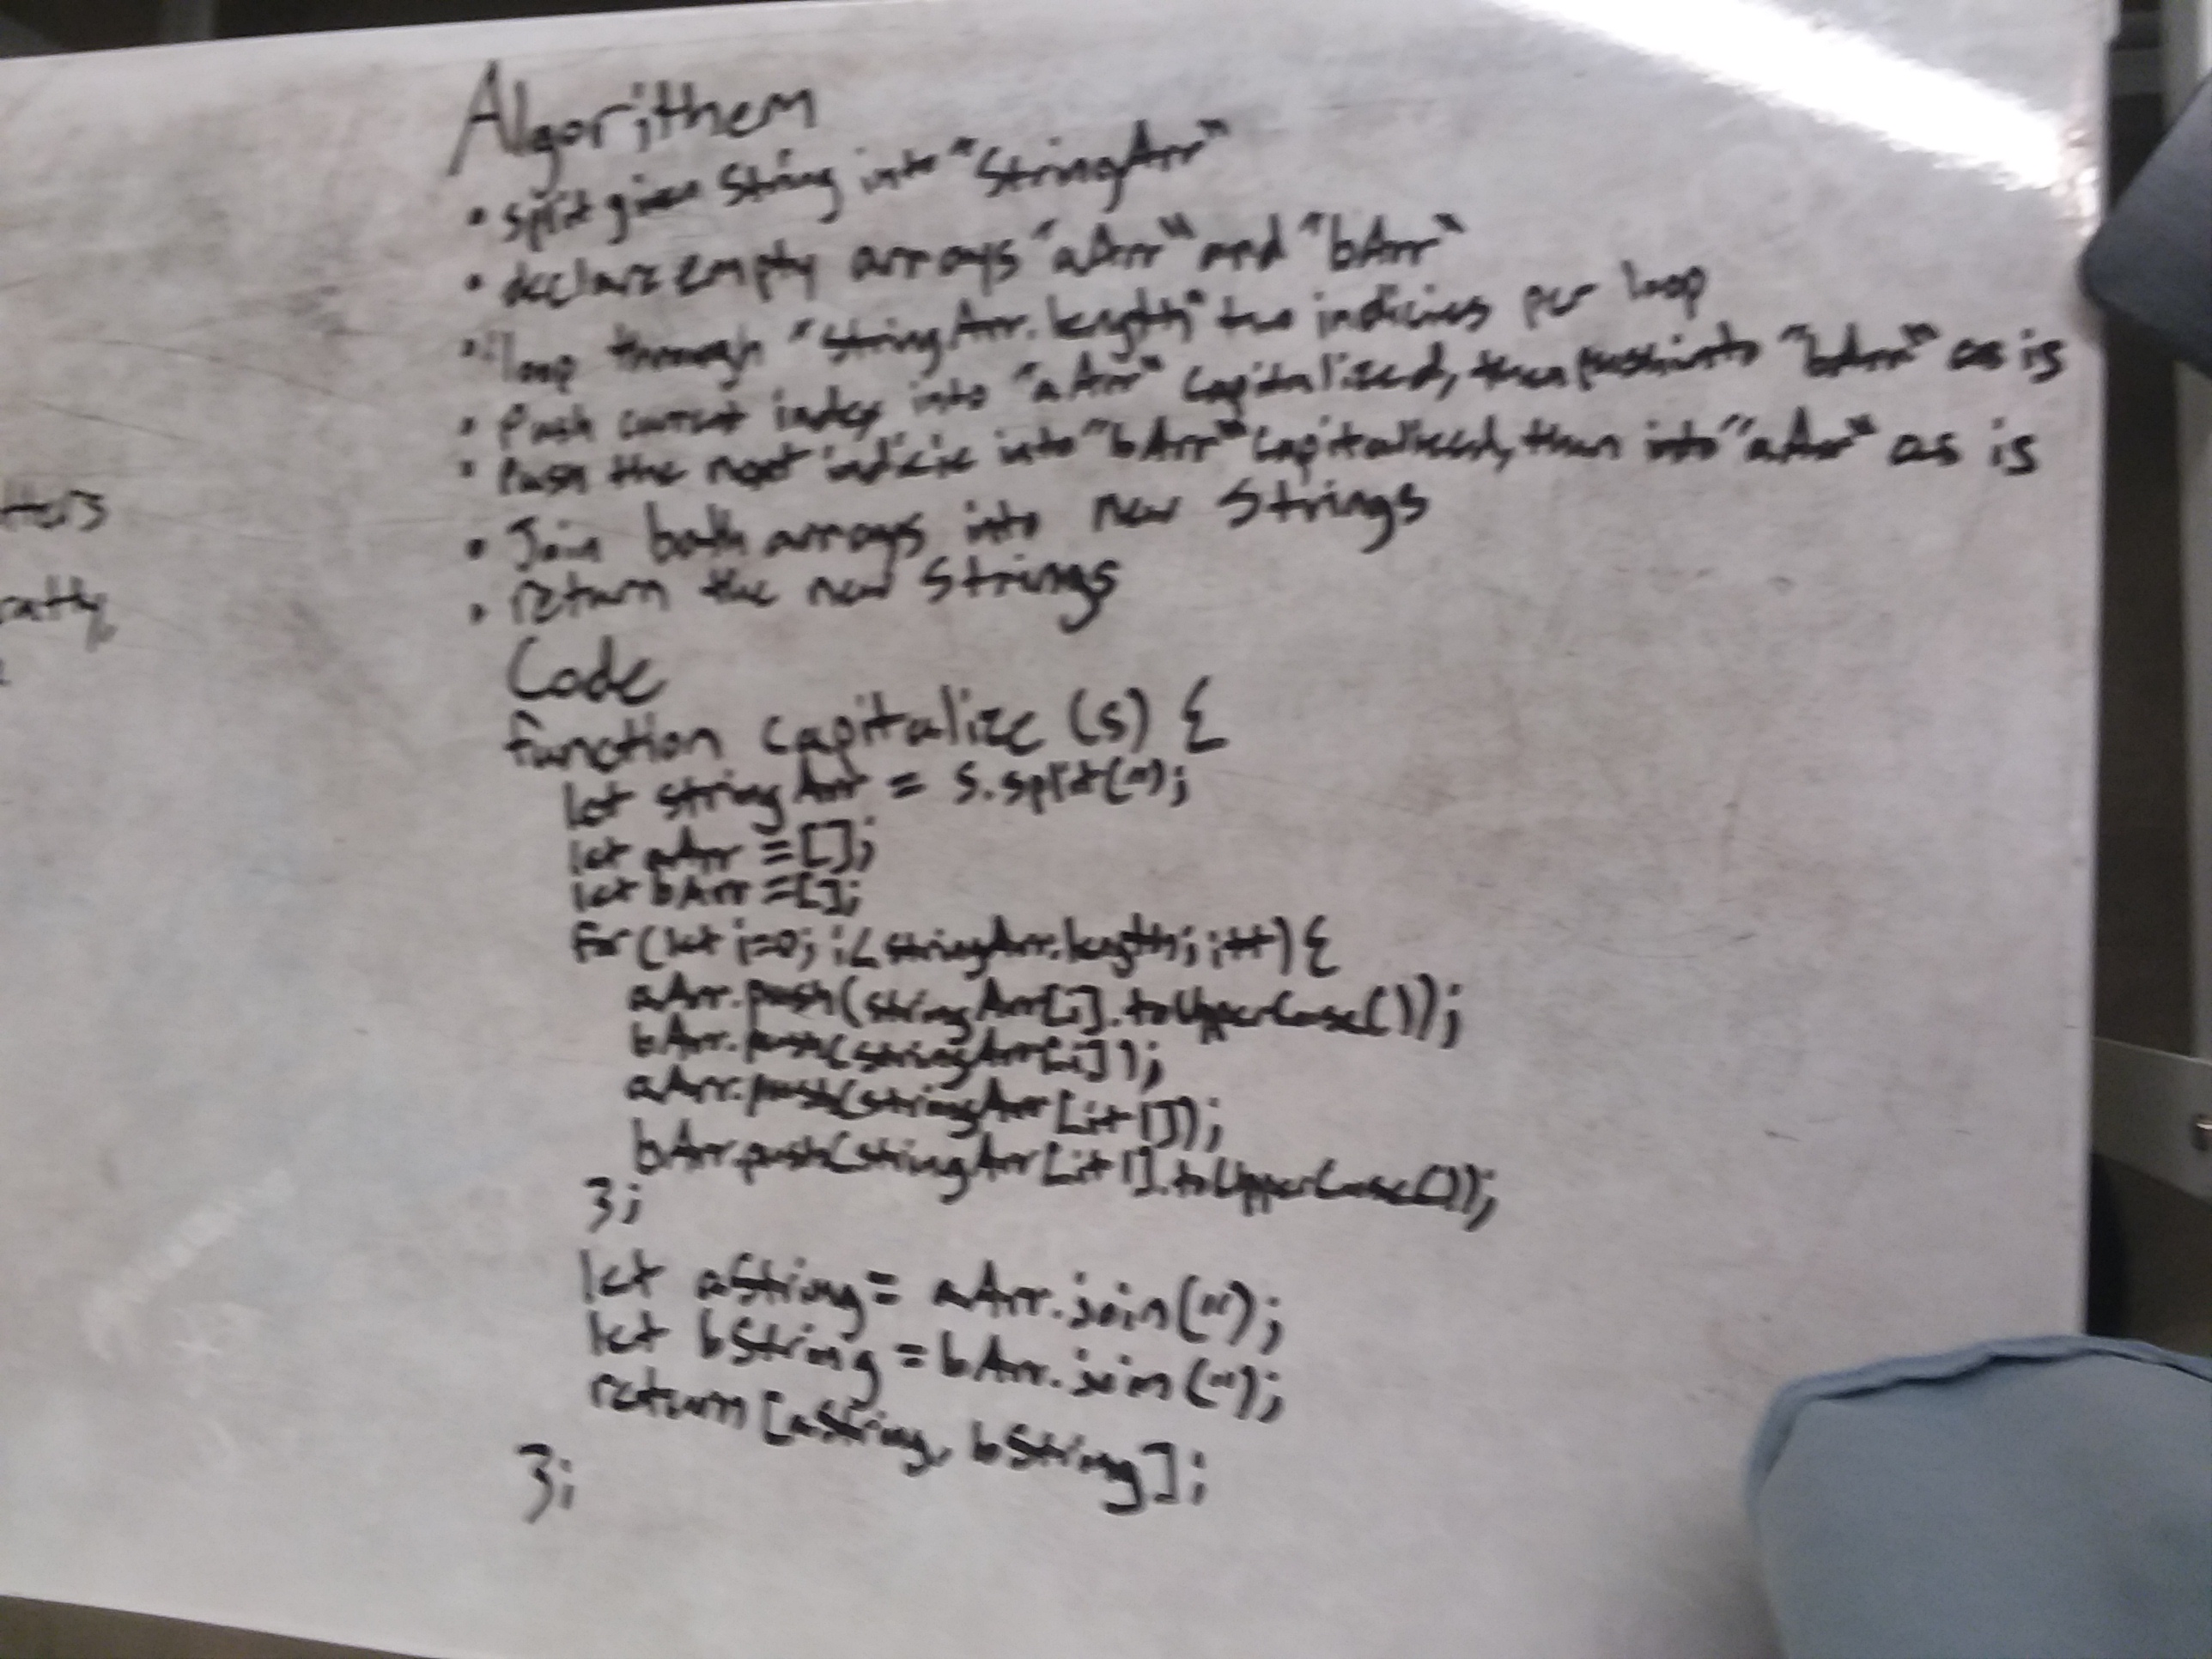 Algorithem
• split given String into "StringArr"
• declare empty arrays "aArr" and "bArr"
• loop through "StringArr.length" two indicies per loop
• Push current index into "aArr" capitalized, then push into "bArr" as is
• Push the next indicie into "bArr" capitalized, then into "aArr" as is
• Join both arrays into new Strings
• return the new Strings
Code
function capitalize (s) {
let stringArr = s.split('');
let aArr = [];
let bArr = [];
for (let i=0; i< stringArr.length; i++) {
aArr.push(stringArr[i].toUpperCase());
bArr.push(stringArr[i]);
aArr.push(stringArr[i+1]);
bArr.push(stringArr[i+1].toUpperCase());
};
let aString = aArr.join('');
let bString = bArr.join('');
return [aString, bString];
};